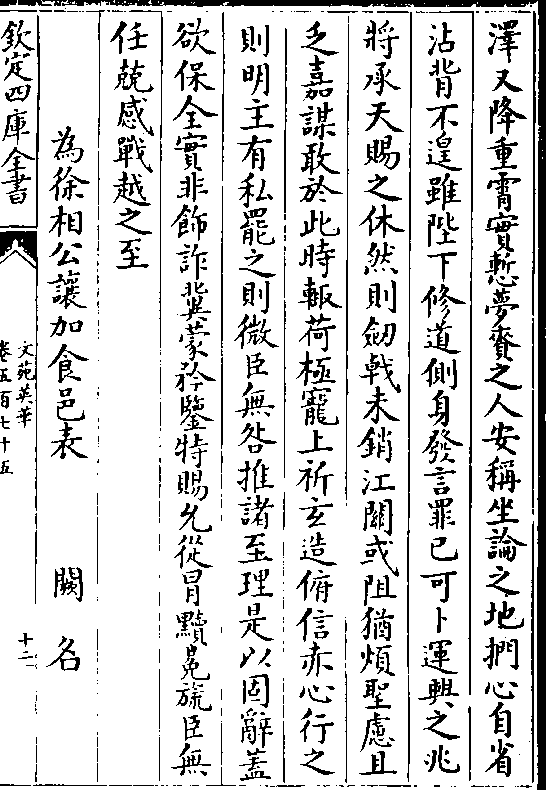 澤又降重霄實慙夢賚之人安稱坐論之地捫心自省
沾背不遑雖陛下修道側身發言罪已可卜運興之兆
將承天賜之休然則劒戟未銷江關或阻猶煩聖慮且
乏嘉謀敢於此時輙荷極寵上祈玄造俯信赤心行之
則明主有私罷之則微臣無咎推諸至理是以固辭蓋
欲保全實非飾詐兾蒙矜鑒特賜允從冒黷冕旒臣無
任兢感戰越之至
為徐相公讓加食邑表 闕名
欽定四庫全書
文苑英華
卷五百七十五
十二